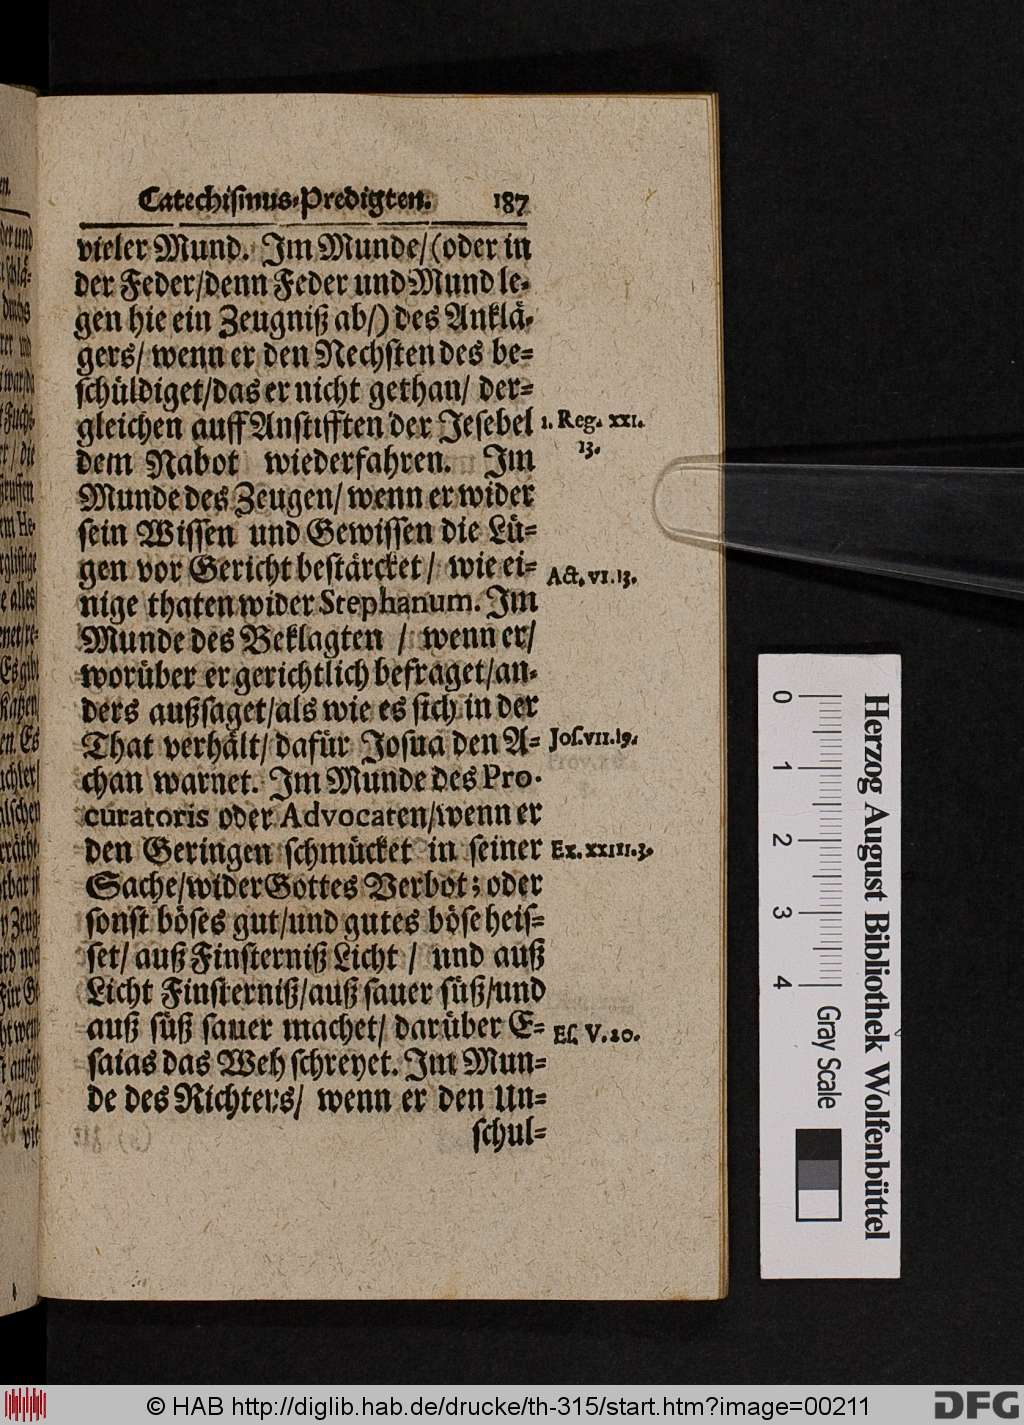 Catechiſmus-Predigten. 187
vieler Mund. Im Munde/(oder in
der Feder/denn Feder und Mund le-
gen hie ein Zeugniß ab/) des Anklä-
gers/ wenn er den Nechſten des be-
ſchüldiget/das er nicht gethan/ der-
gleichen auff Anſtifften der Jeſebel
1. Reg. XXI.
13.
dem Nabot wiederfahren. Im
Munde des Zeugen/ wenn er wider
ſein Wiſſen und Gewiſſen die Lü-
gen vor Gericht beſtärcket/ wie ei-
Act. VI. 13.
nige thaten wider Stephanum. Im
Munde des Beklagten / wenn er/
worüber er gerichtlich befraget/an-
ders außſaget/als wie es ſich in der
That verhält/ dafür Joſua den A-
Joſ. VII. 19.
chan warnet. Im Munde des Pro-
curatoris oder Advocaten/wenn er
den Geringen ſchmücket in ſeiner
Ex. XXIII. 3.
Sache/wider Gottes Verbot; oder
ſonſt böſes gut/und gutes böſe heiſ-
ſet/ auß Finſterniß Licht / und auß
Licht Finſterniß/auß ſauer ſüß/und
auß ſüß ſauer machet/ darüber E-
Eſ. V. 20.
ſaias das Weh ſchreyet. Im Mun-
de des Richters/ wenn er den Un-
ſchul-
0 1 2 3 4
Gray Scale
Herzog August Bibliothek Wolfenbüttel
© HAB http://diglib.hab.de/drucke/th-315/start.htm?image=00211
DFG